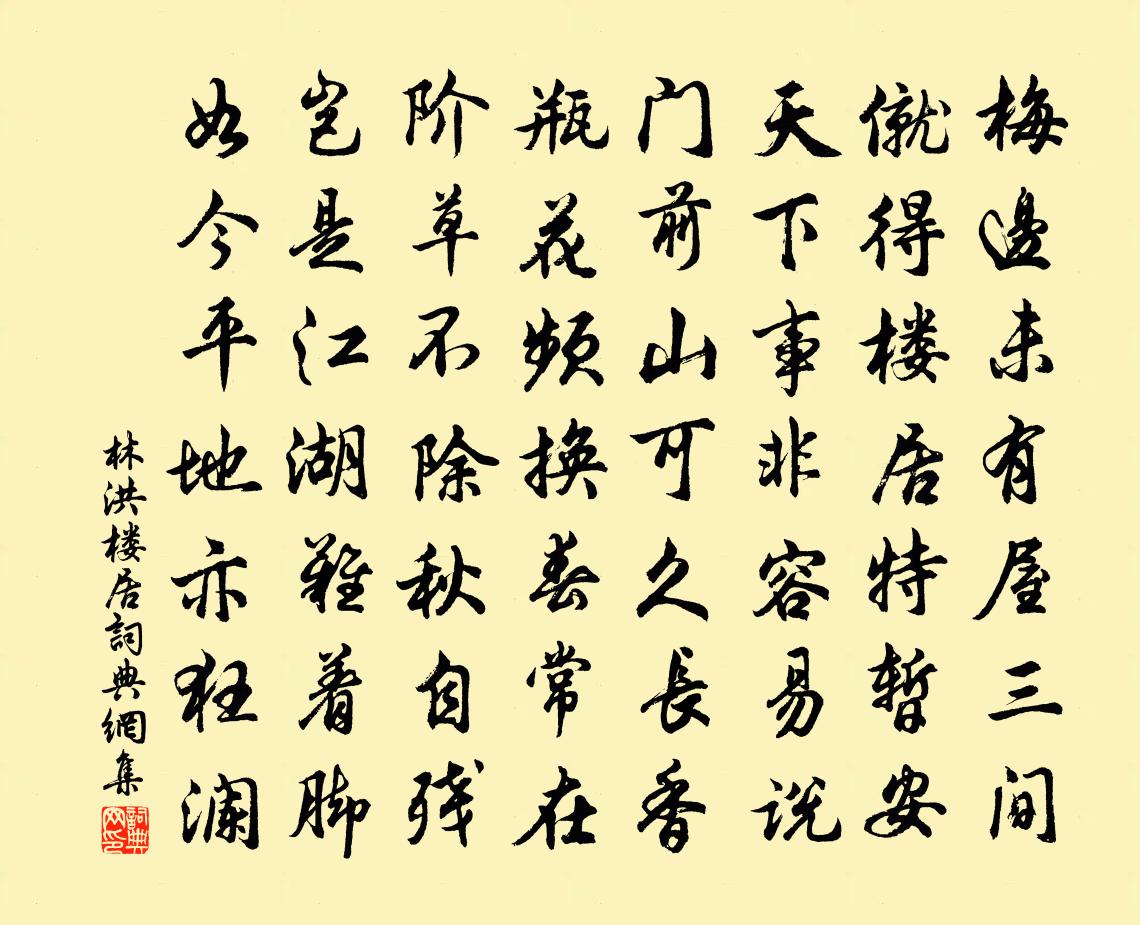 梅邊未有屋三间
僦得楼居特暫安
天下事非容易说
门前山可久長看
瓶花频换春常在
阶草不除秋自残
岂是江湖難着脚
如今平地亦狂澜
林洪楼居詞典網集
詞典
网印